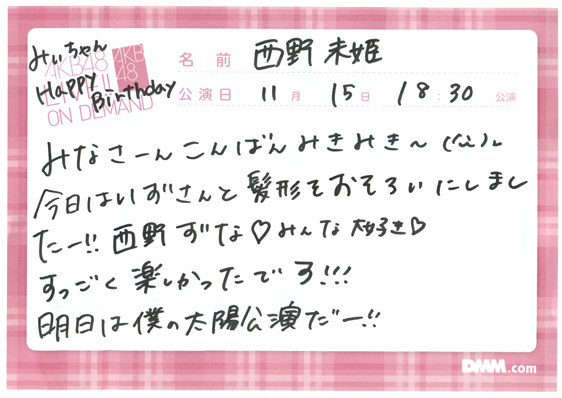 みぃちゃん
Happy Birthday
AKB48
LIVE!!
ON DEMAND
AKB
48
名前 西野未姫
公演日 11月 15日 18:30 公演
みなさーんこんばんみきみき〜
今日はいずさんと髪形をおそろいにしまし
たー!! 西野ずな♡みんな大好き♡
すっごく楽しかったです!!!
明日は僕の太陽公演だー!!
DMM.com